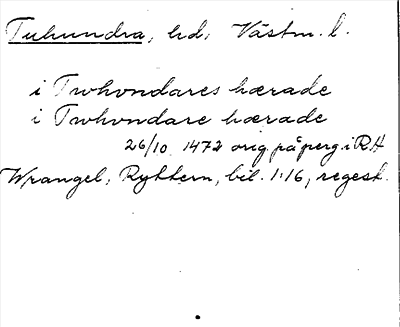 Tuhundra, hd, Västm. l.
i Twhvndares hærade
i Twhvndare hærade
26/10 1472 orig. på perg. i RH
Wrangel, Ryttern, bil. 1:16, regest.